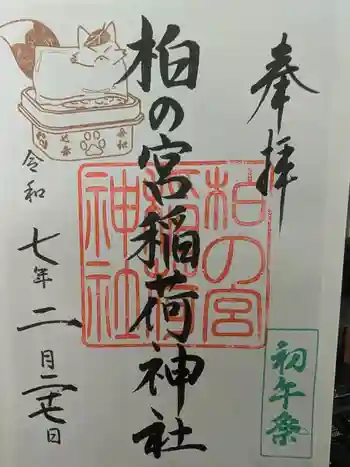 奉拝
初午祭
柏の宮稲荷神社
柏の宮
稲荷
神社
令和
七年
二月
二十七日